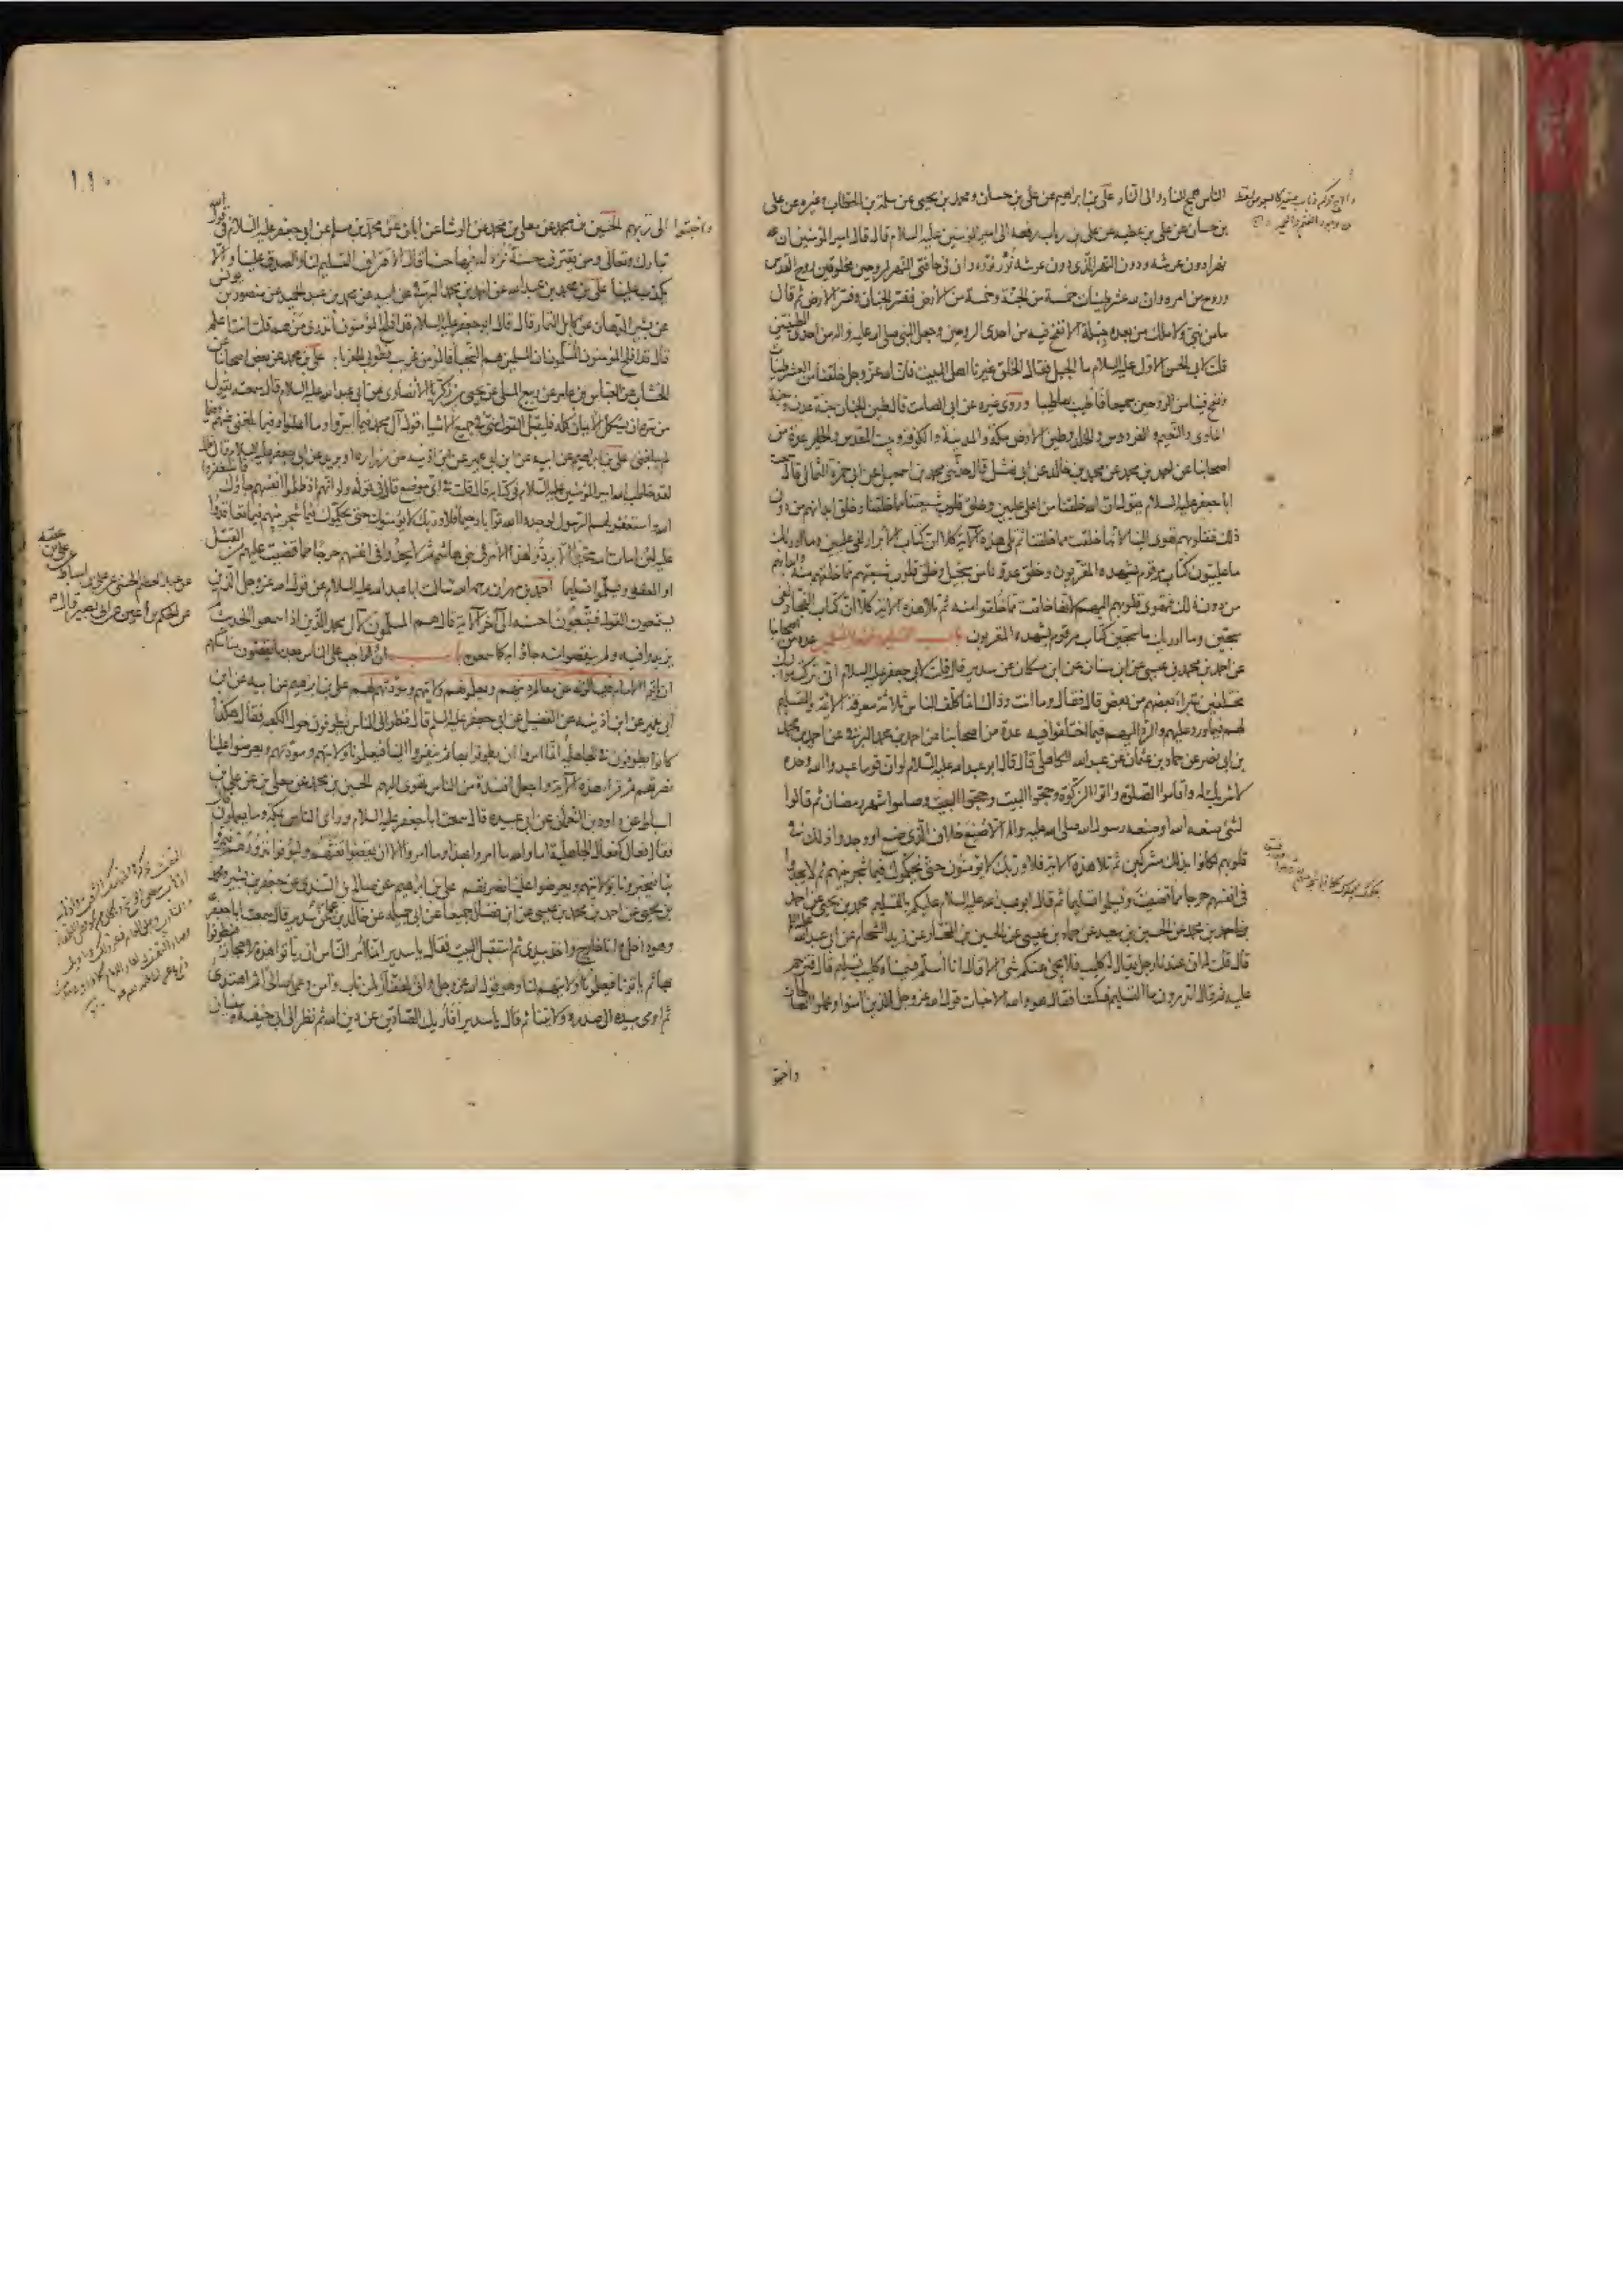 الناس همج للنار والى النار على بن ابراهيم عن على بن حسان ومحمد بن يحيى عن سلمة بن الخطاب وغيره عن على
بن حسان عن على بن عطيه عن على بن رياب رفعه الى امير المؤمنين عليه السلام قال قال امير المؤمنين ان لله
نهرا دون عرشه ودون النهر الذى دون عرشه نور نوره وان فى حافتى النهر روحين مخلوقين روح القدس
وروح من امره وان لله عشر طينات خمسة من الجنة وخمسة من الأرض ففسر الجنان وفسر الأرض ثم قال
ما من نبى ولا ملك من بعده جبله الا نفخ فيه من احدى الروحين وجعل النبى صلى الله عليه واله من احدى الطينتين
قلت لابى الحسن الاول عليه السلام ما الجبل فقال الخلق غيرنا اهل البيت فان الله عز وجل خلقنا من العشر طينات
ونفخ فينا من الروحين جميعا فاطيب بها طيبا وروى غيره عن ابى الصامت قال طين الجنان جنة عدن وجنة
الماوى والنعيم والفردوس والخلد وطين الأرض مكة والمدينة والكوفة وبيت المقدس والحاير عدة من
اصحابنا عن احمد بن محمد عن محمد بن خالد عن ابى نهشل قال حدثنى محمد بن اسمعيل عن ابى حمزة الثمالى قال سمعت
ابا جعفر عليه السلام يقول ان الله خلقنا من اعلى عليين وخلق قلوب شيعتنا مما خلقنا وخلق ابدانهم من دون
ذلك فقلوبهم تهوى الينا لانها خلقت مما خلقنا ثم تلى هذه الآية كلا ان كتاب الأبرار لفى عليين وما ادريك
ما عليون كتاب مرقوم يشهده المقربون وخلق عدونا من سجيل وخلق قلوب شيعتهم مما خلقهم منه وابدانهم
من دون ذلك فقلوبهم تهوى اليهم لانها خلقت مما خلقوا منه ثم تلا هذه الآية كلا ان كتاب الفجار لفى
سجين وما ادريك ما سجين كتاب مرقوم يشهده المقربون باب التسليم وفضل المسلمين عدة من اصحابنا
عن احمد بن محمد بن عيسى عن ابن سنان عن ابن مسكان عن سدير قال قلت لابى جعفر عليه السلام انى تركت مواليك
مختلفين يتبراء بعضهم من بعض قال فقال وما انت وذاك انما كلف الناس ثلاثة معرفة الائمة والتسليم
لهم فيما ورد عليهم والرد اليهم فيما اختلفوا فيه عدة من اصحابنا عن احمد بن محمد البرقى عن احمد بن محمد
بن ابى نصر عن حماد بن عثمان عن عبد الله الكاهلى قال قال ابو عبد الله عليه السلام لو ان قوما عبدوا الله وحده
لا شريك له واقاموا الصلوة واتوا الزكوة وحجوا البيت وصاموا شهر رمضان ثم قالوا
لشئ صنعه الله او صنعه رسول الله صلى الله عليه واله الا صنع خلاف الذى صنع او وجدوا ذلك فى
قلوبهم لكانوا بذلك مشركين ثم تلا هذه الآية فلا وربك لا يؤمنون حتى يحكموك فيما شجر بينهم ثم لا يجدوا
فى انفسهم حرجا مما قضيت ويسلموا تسليما ثم قال ابو عبد الله عليه السلام عليكم بالتسليم محمد بن يحيى عن احمد
بن محمد عن الحسين بن سعيد عن حماد بن عيسى عن الحسين بن المختار عن زيد الشحام عن ابى عبد الله عليه السلام
قال قلت له ان عندنا رجلا يقال له كليب فلا يجئ عنكم شئ الا قال انا اسلم فسميناه كليب تسليم قال فترحم
عليه ثم قال اتدرون ما التسليم فسكتنا فقال هو والله الاخبات قول الله عز وجل الذين امنوا وعملوا الصالحات
واخبتو
١١٠
واخبتوا الى ربهم الحسين بن محمد عن معلى بن محمد عن الوشا عن ابان عن محمد بن مسلم عن ابى جعفر عليه السلام فى قول الله
تبارك وتعالى ومن يقترف حسنة نزد له فيها حسنا قال الاقتراف التسليم لنا والصدق علينا والا
يكذب علينا على بن محمد بن عبد الله عن احمد بن محمد البرقى عن ابيه عن محمد بن عبد الحميد عن منصور بن يونس
عن بشير الدهان عن كامل التمار قال قال ابو جعفر عليه السلام قد افلح المؤمنون أتدرى من هم قلت انت اعلم
قال قد افلح المؤمنون المسلمون ان المسلمين هم النجبا فالمؤمن غريب فطوبى للغرباء على بن محمد عن بعض اصحابنا عن
الخشاب عن العباس بن عامر عن ربيع المسلى عن يحيى بن زكريا الأنصارى عن ابى عبد الله عليه السلام قال سمعته يقول
من سره ان يستكمل الايمان كله فليقل القول منى فى جميع الاشياء قول آل محمد فيما اسروا وما اعلنوا وفيما بلغنى عنهم وفيما
لم يبلغنى على بن ابراهيم عن ابيه عن ابن ابى عمير عن ابن اذينه عن زراره او بريد عن ابى جعفر عليه السلام قال قال
لقد خاطب الله امير المؤمنين عليه السلام فى كتابه قال قلت فى اى موضع قال فى قوله ولو انهم اذ ظلموا انفسهم جاؤك فاستغفروا
الله واستغفر لهم الرسول لوجدوا الله توابا رحيما فلا وربك لا يؤمنون حتى يحكموك فيما شجر بينهم فيما تعاقدوا
عليه لئن امات الله محمدا الا يردوا هذا الأمر فى بنى هاشم ثم لا يجدوا فى انفسهم حرجا مما قضيت عليهم من القتل
او العفو ويسلموا تسليما احمد بن مهران رحمه الله سالت ابا عبد الله عليه السلام عن قول الله عز وجل الذين
يستمعون القول فيتبعون احسنه الى آخر الآية قال هم المسلمون لآل محمد الذين اذا سمعوا الحديث
لم يزيدوا فيه ولم ينقصوا منه جاؤا به كما سمعوه باب ان الواجب على الناس بعد ما يقضون مناسكهم
ان ياتوا الامام فيسالونه عن معالم دينهم ويعلمونهم ولايتهم ومودتهم لهم على بن ابراهيم عن ابيه عن ابن
ابى عمير عن ابن اذينه عن الفضيل عن ابى جعفر عليه السلام قال نظر الى الناس يطوفون حول الكعبه فقال هكذا
كانوا يطوفون فى الجاهلية انما امروا ان يطوفوا بها ثم ينفروا الينا فيعلمونا ولايتهم ومودتهم ويعرضوا علينا
نصرتهم ثم قرأ هذه الآية واجعل افئدة من الناس تهوى اليهم الحسين بن محمد عن معلى بن محمد عن على بن
اسباط عن داود بن النعمان عن ابى عبيده قال سمعت ابا جعفر عليه السلام وراى الناس بمكه وما يعملون
فقال فعال كفعال الجاهلية اما والله ما امروا بهذا وما امروا الا ان يقضوا تفثهم وليوفوا نذورهم فيمروا
بنا فيخبرونا بولايتهم ويعرضوا علينا نصرتهم على بن ابراهيم عن صالح بن السندى عن جعفر بن بشير ومحمد
بن يحيى عن احمد بن محمد بن عيسى عن ابن فضال جميعا عن ابى جميله عن خالد بن عمار عن سدير قال سمعت ابا جعفر
وهو داخل وانا خارج واخذ بيدى ثم استقبل البيت فقال يا سدير انما امر الناس ان ياتوا هذه الاحجار فيطوفوا
بها ثم ياتونا فيعلمونا ولايتهم لنا وهو قول الله عز وجل وانى لغفار لمن تاب وآمن وعمل صالحا ثم اهتدى
ثم اومى بيده الى صدره ولايتنا ثم قال يا سدير أفأريك الصادين عن دين الله ثم نظر الى ابى حنيفه وسفيان
عن عبد العظيم الحسنى عن على بن اسباط
عن على بن عقبه
عن الحكم بن أعين عن ابى بصير قال